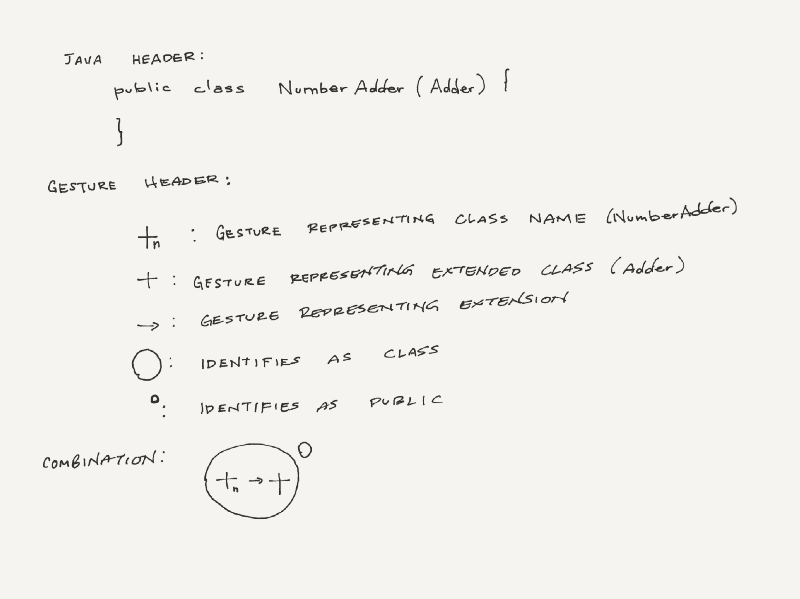 JAVA HEADER:
public class NumberAdder (Adder) {
}
GESTURE HEADER:
+n : GESTURE REPRESENTING CLASS NAME (NumberAdder)
+ : GESTURE REPRESENTING EXTENDED CLASS (Adder)
→ : GESTURE REPRESENTING EXTENSION
○ : IDENTIFIES AS CLASS
° : IDENTIFIES AS PUBLIC
COMBINATION: +n → +